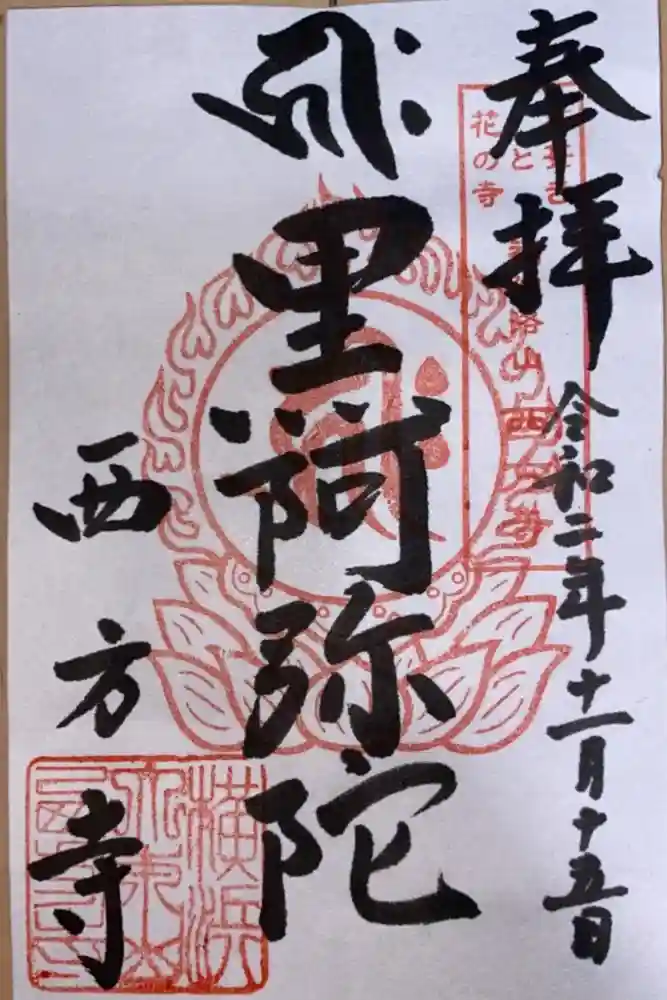 奉拝
令和二年十一月十五日
黒阿弥陀
西方寺
花の寺
西方寺
横浜